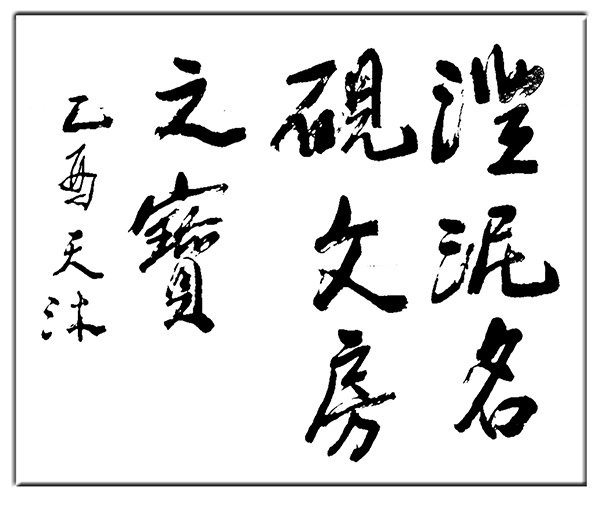 澄泥名
硯文房
之寶
乙酉天沐